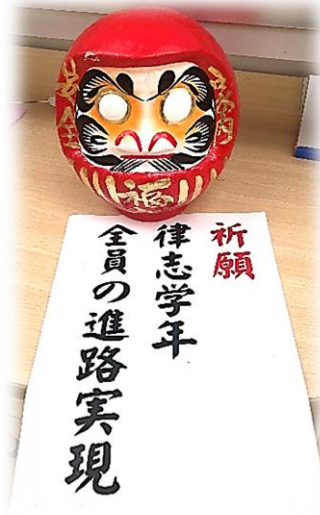 福
祈願
律志学年
全員の進路実現